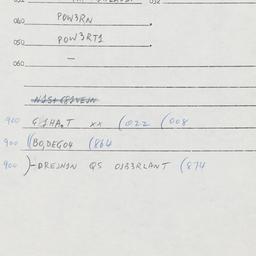 040 POW3RN
050 POW3RT1
060 —
900 GJHA.T xx (022 (008
900 BO,DEGO4 (864
900 DREJNJN QS OJB3RLANT (874